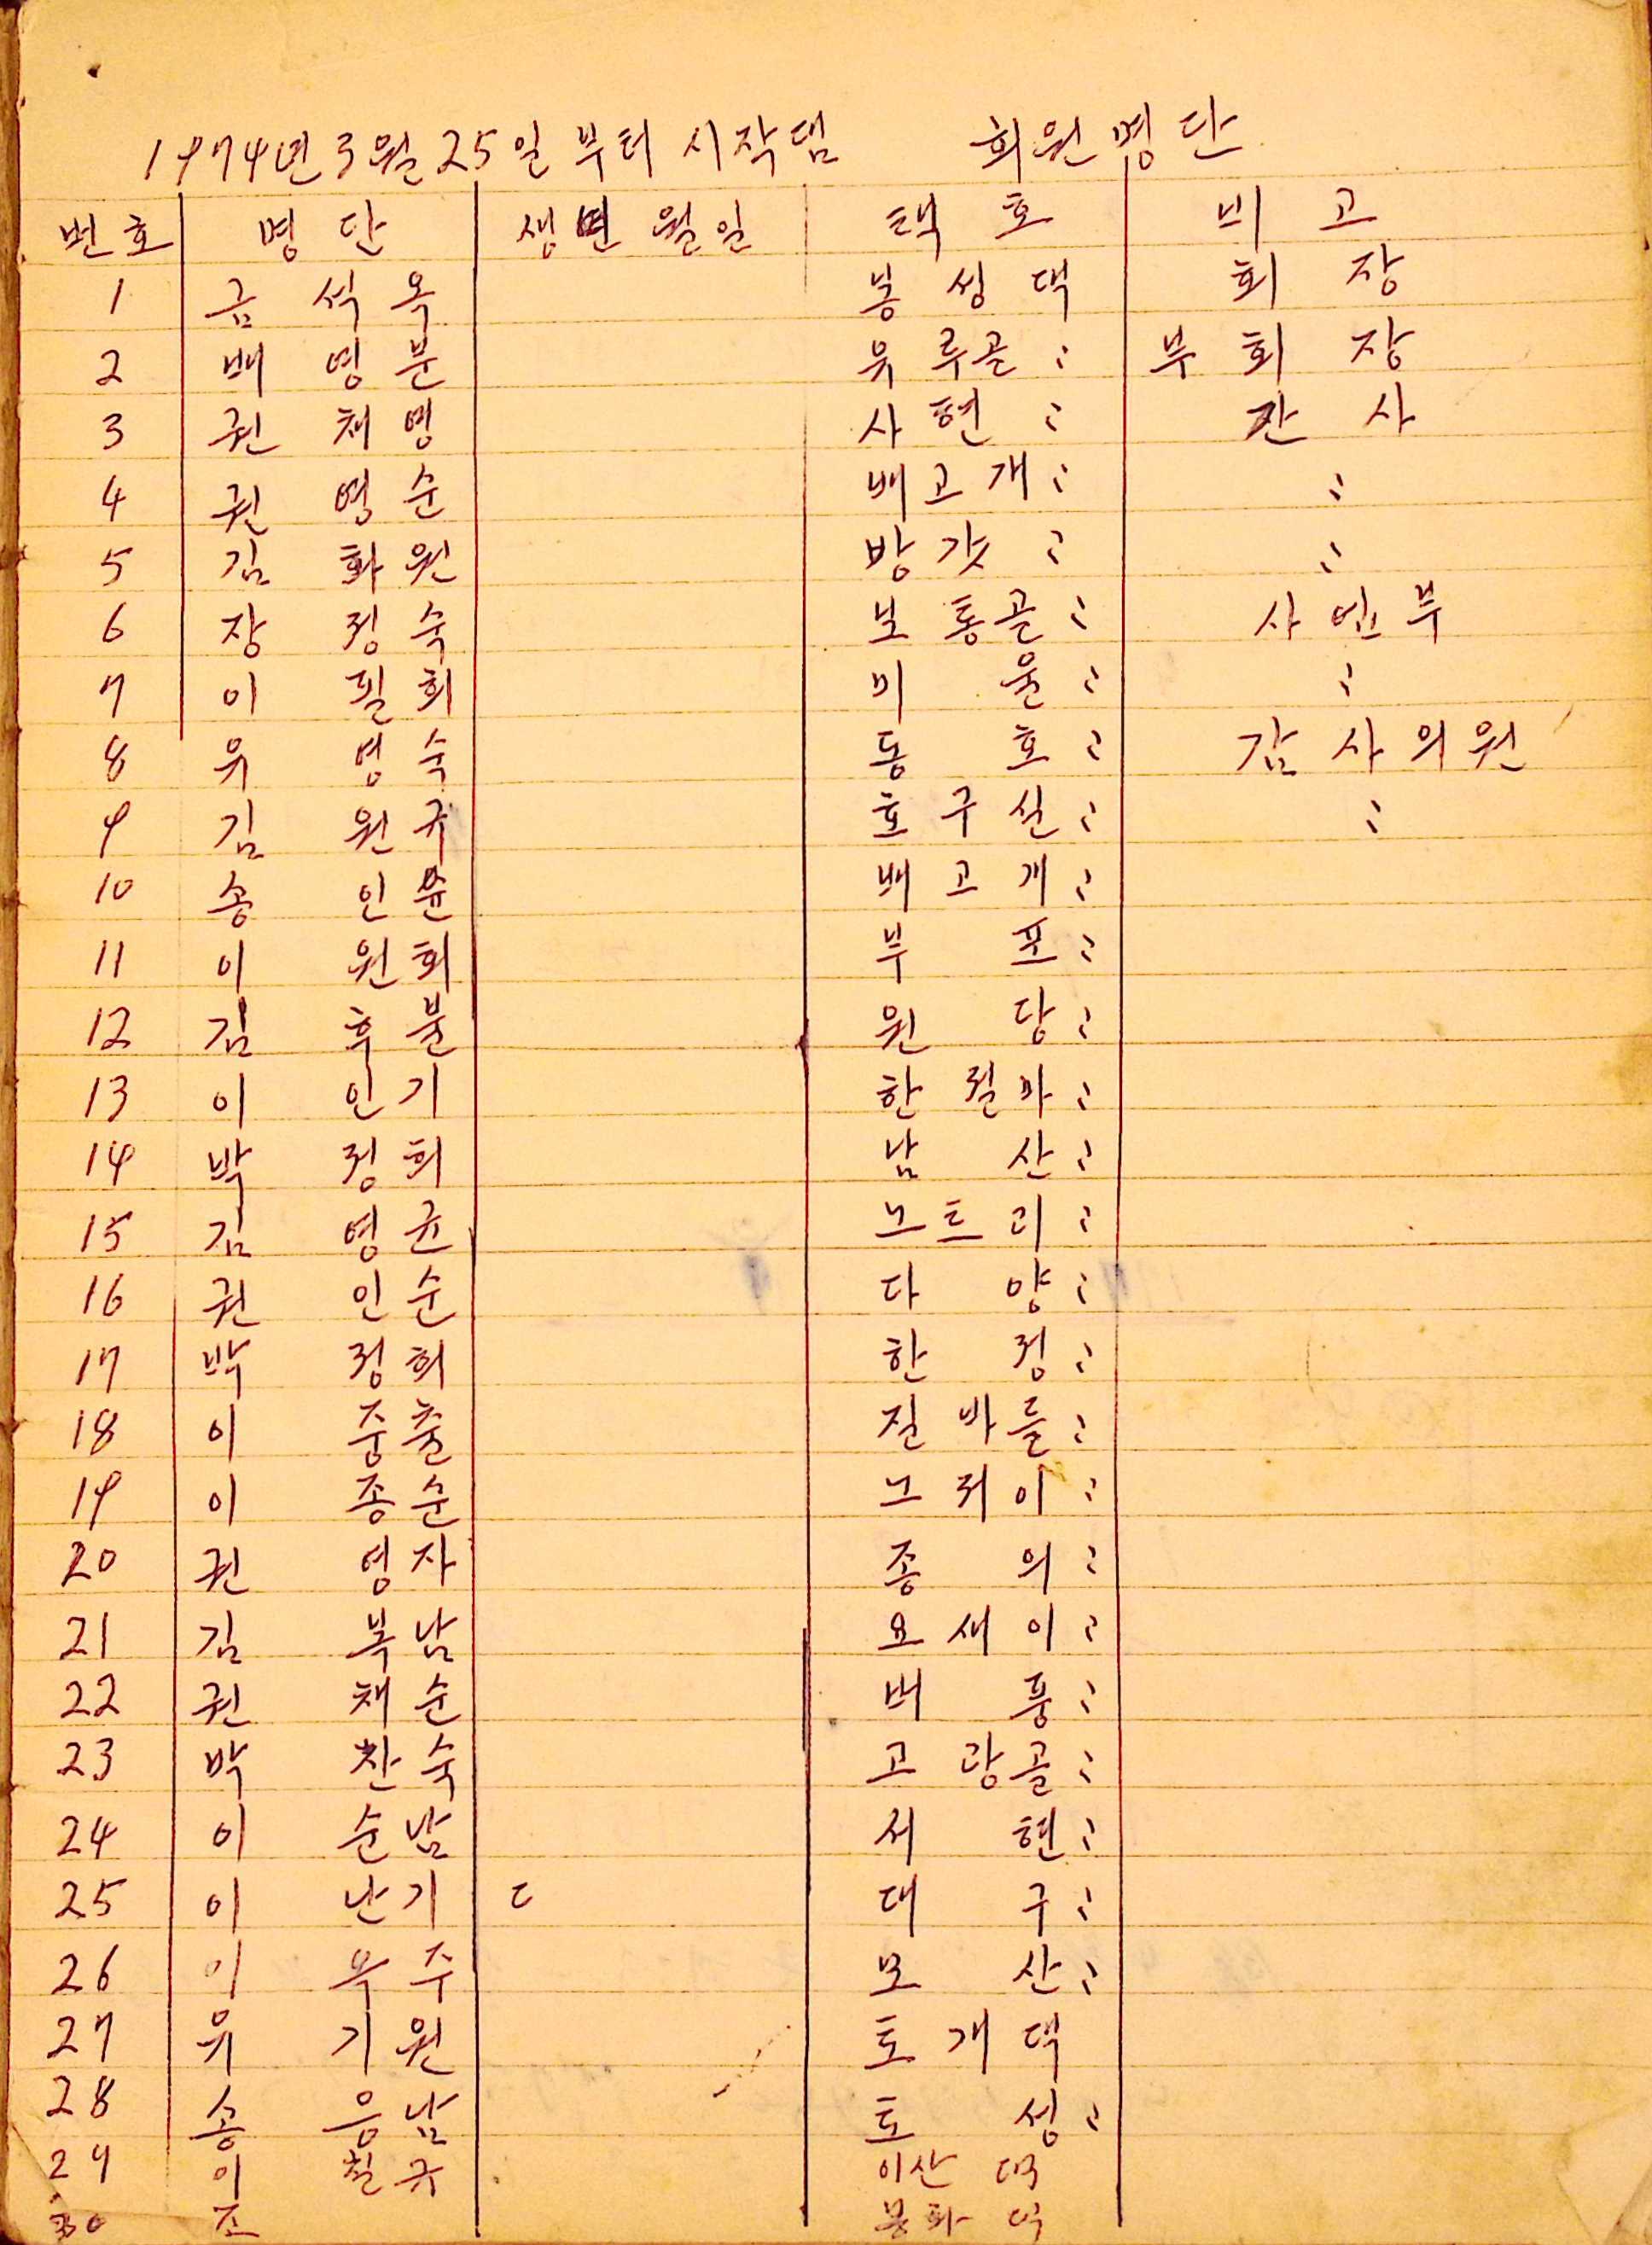 1974년 3월 25일 부터 시작댐 회원명단
번호 명단 생년월일 택호 비고
1 금석옥 봉성댁 회장
2 배영분 유루골 〃 부회장
3 권채영 사현 〃 간사
4 권영순 배고개 〃 〃
5 김화원 방갓 〃 〃
6 장정숙 보통골 〃 사업부
7 이필희 미울 〃 〃
8 유영숙 동호 〃 감사의원
9 김원규 호구실 〃 〃
10 송인분 배고개 〃
11 이원희 부포 〃
12 김후불 원당 〃
13 이인기 한절마 〃
14 박정희 남산 〃
15 김영균 노트리 〃
16 권인순 다양 〃
17 박정희 한정 〃
18 이중출 질바들 〃
19 이종순 노저이 〃
20 권영자 종의 〃
21 김복남 요새이 〃
22 권채순 배풍 〃
23 박찬숙 고랑골 〃
24 이순남 서현 〃
25 이난기 ㄷ 대구 〃
26 이우주 모산 〃
27 유기원 토개댁
28 송응남 토성 〃
29 이칠규 이산댁
30 조 봉화댁